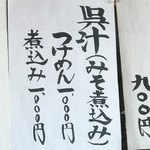 呉汁(みそ煮込み)
つけめん 一、〇〇〇円
煮込み 一、〇〇〇円
九〇〇円